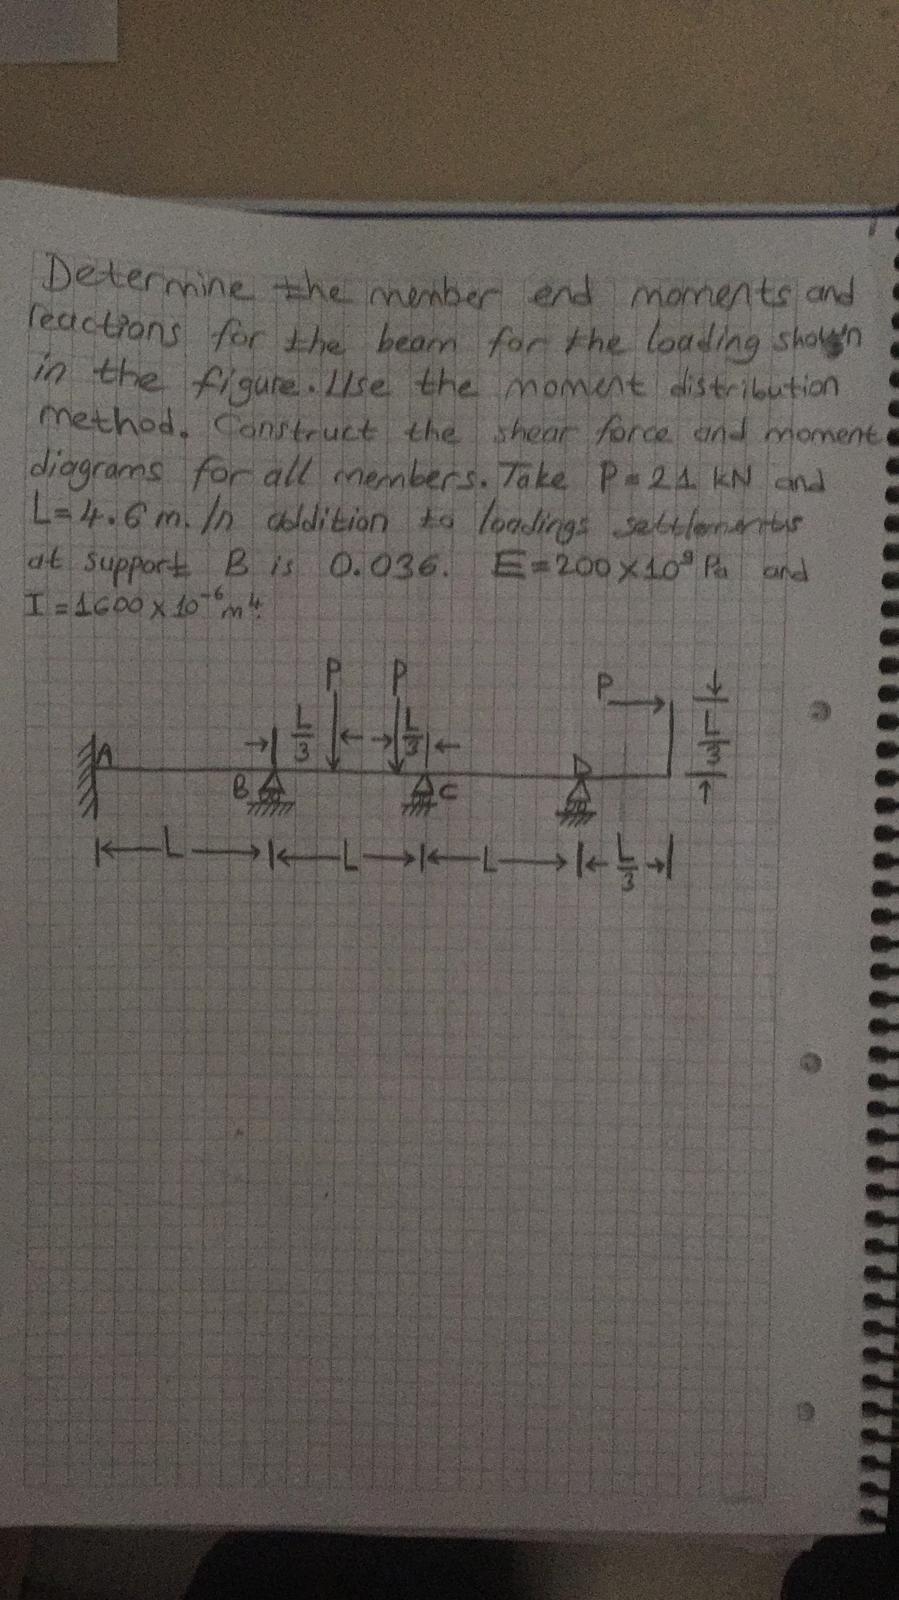 Determine the member end moments and
reactions for the beam for the loading shown
in the figure. Use the moment distribution
method. Construct the shear force and moment
diagrams for all members. Take P=21 kN and
L=4.6 m. In addition to loadings settlements
at support B is 0.036. E=200×10⁹ Pa and
I=1600×10⁻⁶m⁴.
P P
P
L/3 L/3
L/3
A
D
B C
L L L L/3